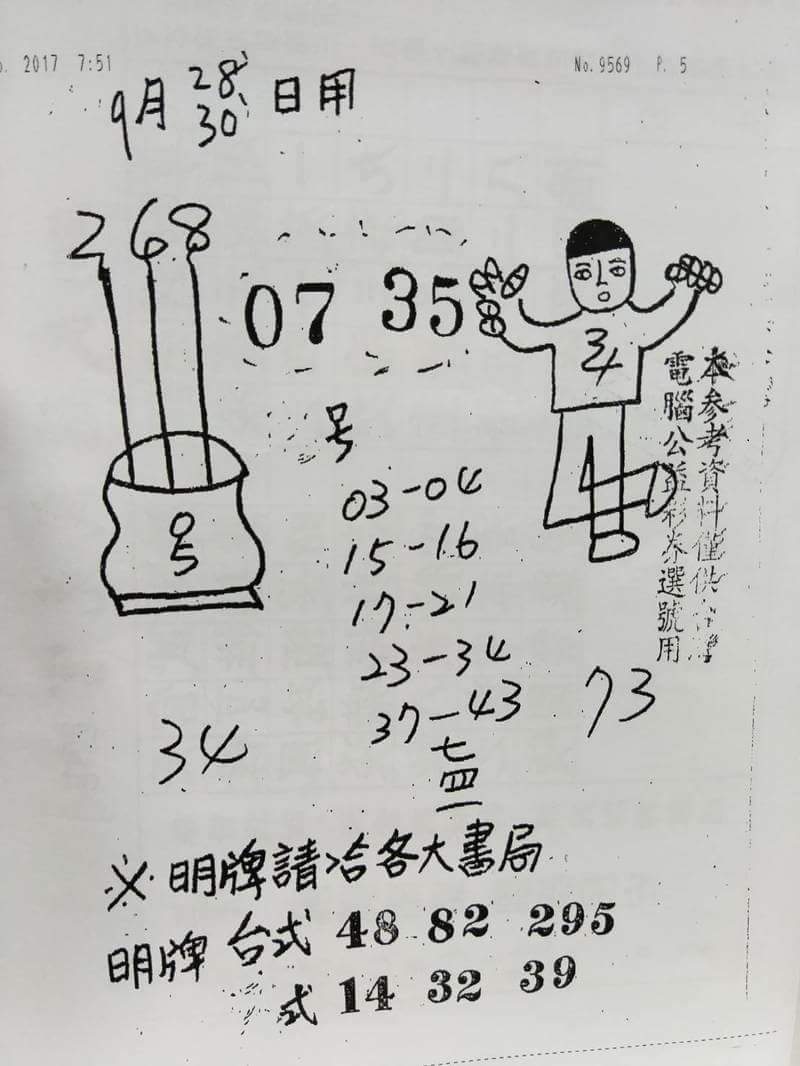 2017 7:51
No.9569 P. 5
9月 28 30 日用
2 6 8
07 35
34
05
号
03-04
15-16
17-21
23-34
37-43
七
四
一
34
73
本參考資料僅供
電腦公益彩券選號用
※明牌請洽各大書局
明牌 台式 48 82 295
式 14 32 39